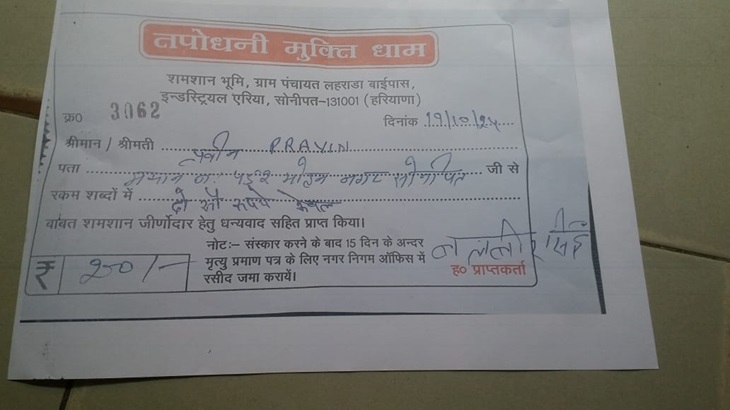 तपोधनी मुक्ति धाम
शमशान भूमि, ग्राम पंचायत लहराडा बाईपास,
इन्डस्ट्रियल एरिया, सोनीपत-131001 (हरियाणा)
क्र0 3062 दिनांक
श्रीमान / श्रीमती प्रवीन PRAVIN
पता मकान न मोहन नगर सोनीपत जी से
रकम शब्दों में दो सौ रूपये केवल
बाबत शमशान जीर्णोदार हेतु धन्यवाद सहित प्राप्त किया।
नोट:– संस्कार करने के बाद 15 दिन के अन्दर
मृत्यु प्रमाण पत्र के लिए नगर निगम ऑफिस में
रसीद जमा करायें।
₹ 200/-
ह० प्राप्तकर्ता